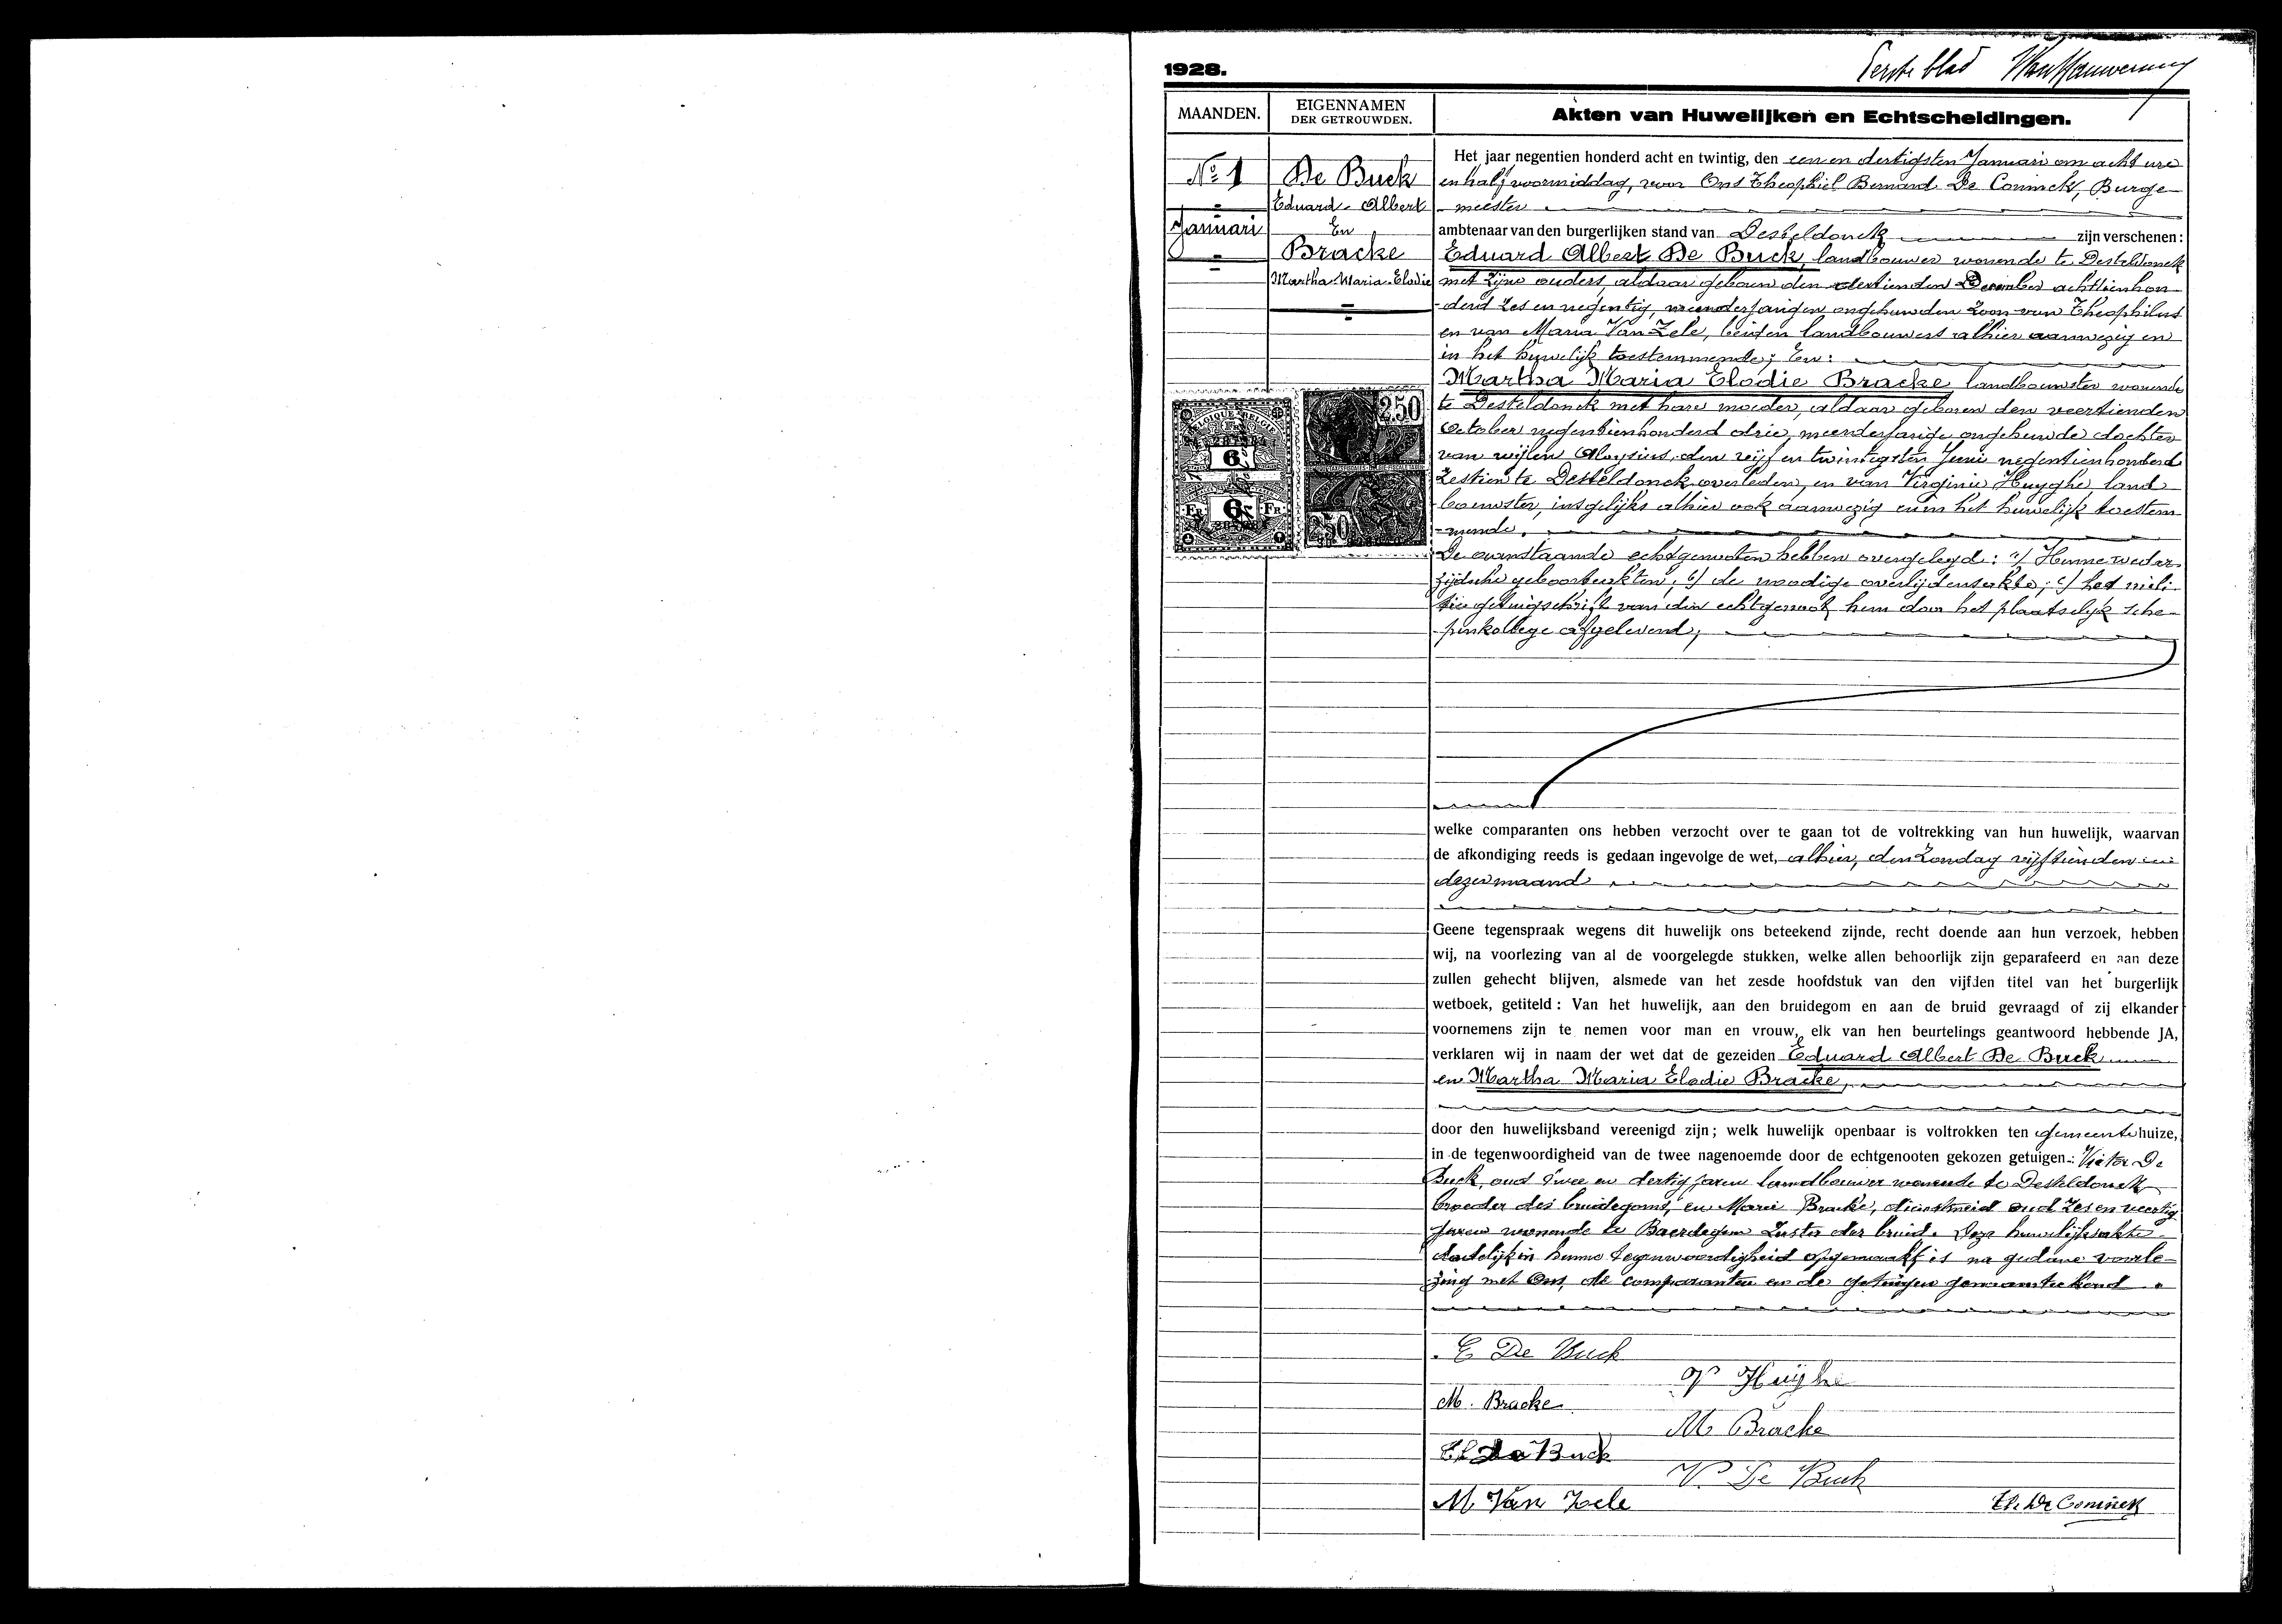 1928.
Eerste blad
MAANDEN.
EIGENNAMEN
DER GETROUWDEN.
Akten van Huwelijken en Echtscheidingen.
No 1
Januari
De Buck
Eduard Albert
En
Bracke
Martha Maria Elodie
Het jaar negentien honderd acht en twintig, den een en dertigsten Januari om acht ure
en half voormiddag, voor Ons Theophiel Bernard De Coninck, Burge-
meester
ambtenaar van den burgerlijken stand van Desteldonck zijn verschenen:
Eduard Albert De Buck, landbouwer wonende te Desteldonck
met zijne ouders, aldaar geboren den dertienden December achttienhon-
derd zes en negentig, meerderjarigen ongehuwden zoon van Theophilus
en van Maria Van Zele, beiden landbouwers alhier aanwezig en
in het huwelijk toestemmende; En:
Martha Maria Elodie Bracke landbouwster wonende
te Desteldonck met hare moeder, aldaar geboren den veertienden
October negentienhonderd drie, meerderjarige ongehuwde dochter
van wijlen Aloysius, den vijf en twintigsten Juni negentienhonderd
zestien te Desteldonck overleden, en van Virginie Huyghe, land-
bouwster, insgelijks alhier ook aanwezig en in het huwelijk toestem-
mende.
BELGIQUE-BELGIË
6
FR 6 FR
2.50
2.50
De aanstaande echtgenooten hebben overgelegd: a) Hunne weder-
zijdsche geboorteakten; b) de noodige overlijdensakte; c) het mili-
tiegetuigschrift van den echtgenoot hem door het plaatselijk sche-
penkollege afgeleverd;
welke comparanten ons hebben verzocht over te gaan tot de voltrekking van hun huwelijk, waarvan
de afkondiging reeds is gedaan ingevolge de wet, alhier, den Zondag vijftienden
dezer maand
Geene tegenspraak wegens dit huwelijk ons beteekend zijnde, recht doende aan hun verzoek, hebben
wij, na voorlezing van al de voorgelegde stukken, welke allen behoorlijk zijn geparafeerd en aan deze
zullen gehecht blijven, alsmede van het zesde hoofdstuk van den vijfden titel van het burgerlijk
wetboek, getiteld: Van het huwelijk, aan den bruidegom en aan de bruid gevraagd of zij elkander
voornemens zijn te nemen voor man en vrouw, elk van hen beurtelings geantwoord hebbende JA,
verklaren wij in naam der wet dat de gezeiden Eduard Albert De Buck
en Martha Maria Elodie Bracke,
door den huwelijksband vereenigd zijn; welk huwelijk openbaar is voltrokken ten gemeentehuize,
in de tegenwoordigheid van de twee nagenoemde door de echtgenooten gekozen getuigen: Victor De
Buck, oud twee en dertig jaren landbouwer wonende te Desteldonck
broeder des bruidegoms, en Marie Bracke, dienstmeid oud zes en veertig
jaren wonende te Baerdegem zuster der bruid. Deze huwelijksakte
dadelijk in hunne tegenwoordigheid opgemaakt is na gedane voorle-
zing met Ons, de comparanten en de getuigen genaamteekend.
E De Buck
V Huyghe
M. Bracke
M Bracke
De Buck
V. De Buck
M Van Zele
Th. De Coninck